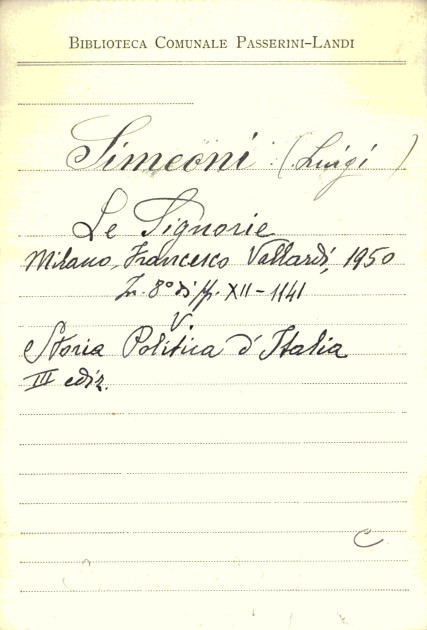 BIBLIOTECA COMUNALE PASSERINI-LANDI
Simeoni (Luigi)
Le Signorie
Milano, Francesco Vallardi, 1950
In 8° di pp. XII-1141
V
Storia Politica d'Italia
III ediz.
C